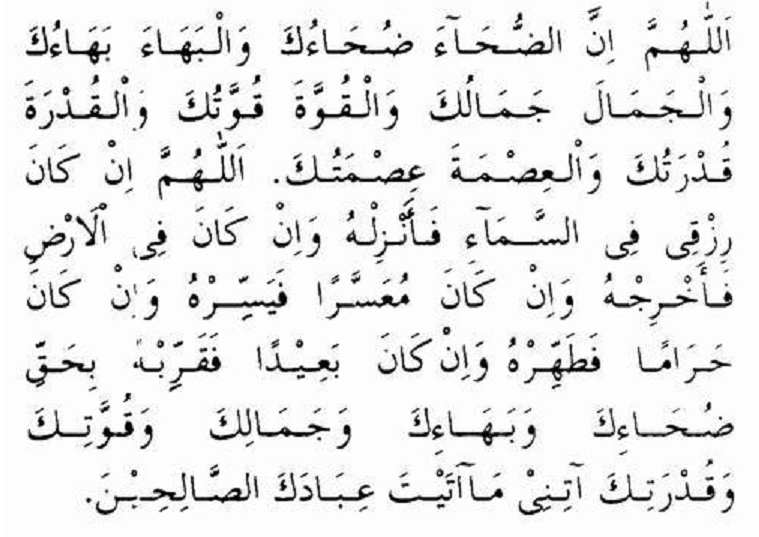 اَللّٰهُمَّ اِنَّ الضُّحَآءَ ضُحَاءُكَ وَالْبَهَاءَ بَهَاءُكَ
وَالْجَمَالَ جَمَالُكَ وَالْقُوَّةَ قُوَّتُكَ وَالْقُدْرَةَ
قُدْرَتُكَ وَالْعِصْمَةَ عِصْمَتُكَ. اَللّٰهُمَّ اِنْ كَانَ
رِزْقِى فِى السَّمَآءِ فَأَنْزِلْهُ وَاِنْ كَانَ فِى اْلَارْضِ
فَأَخْرِجْهُ وَاِنْ كَانَ مُعَسَّرًا فَيَسِّرْهُ وَاِنْ كَانَ
حَرَامًا فَطَهِّرْهُ وَاِنْ كَانَ بَعِيْدًا فَقَرِّبْهُ بِحَقِّ
ضُحَاءِكَ وَبَهَاءِكَ وَجَمَالِكَ وَقُوَّتِكَ
وَقُدْرَتِكَ آتِنِىْ مَاآتَيْتَ عِبَادَكَ الصَّالِحِيْنَ.